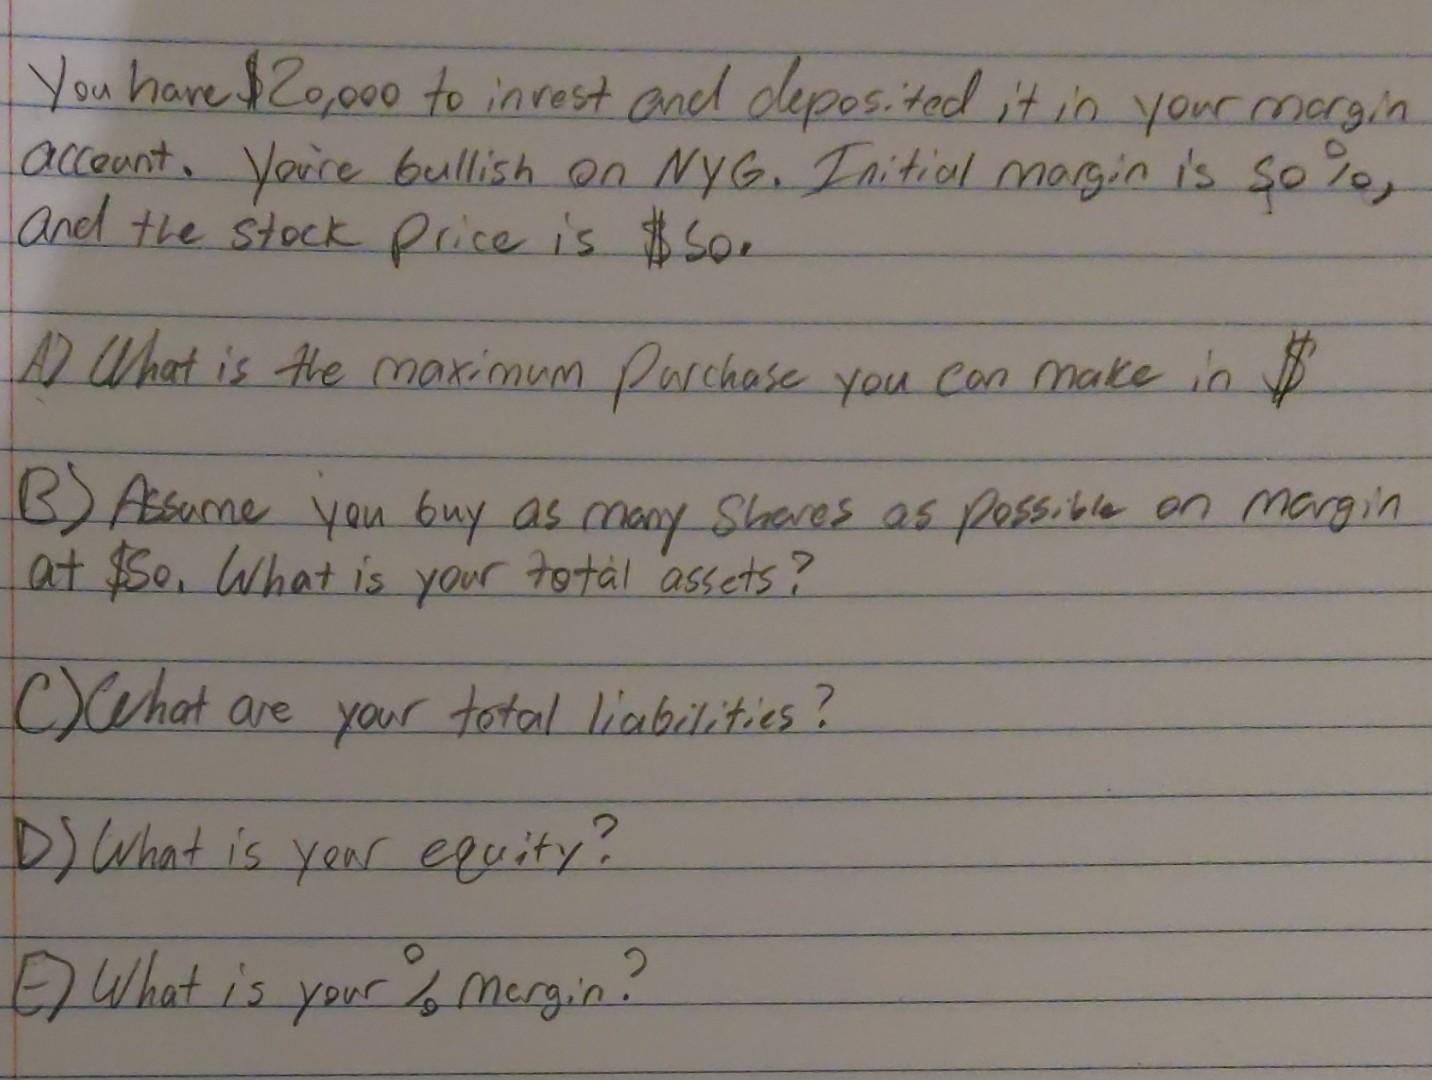 You have $20,000 to invest and deposited it in your margin
account. You're bullish on NYG. Initial margin is 50%,
and the stock price is $50.
A) What is the maximum purchase you can make in $
B) Assume you buy as many shares as possible on margin
at $50. What is your total assets?
C) What are your total liabilities?
D) What is your equity?
E) What is your % margin?